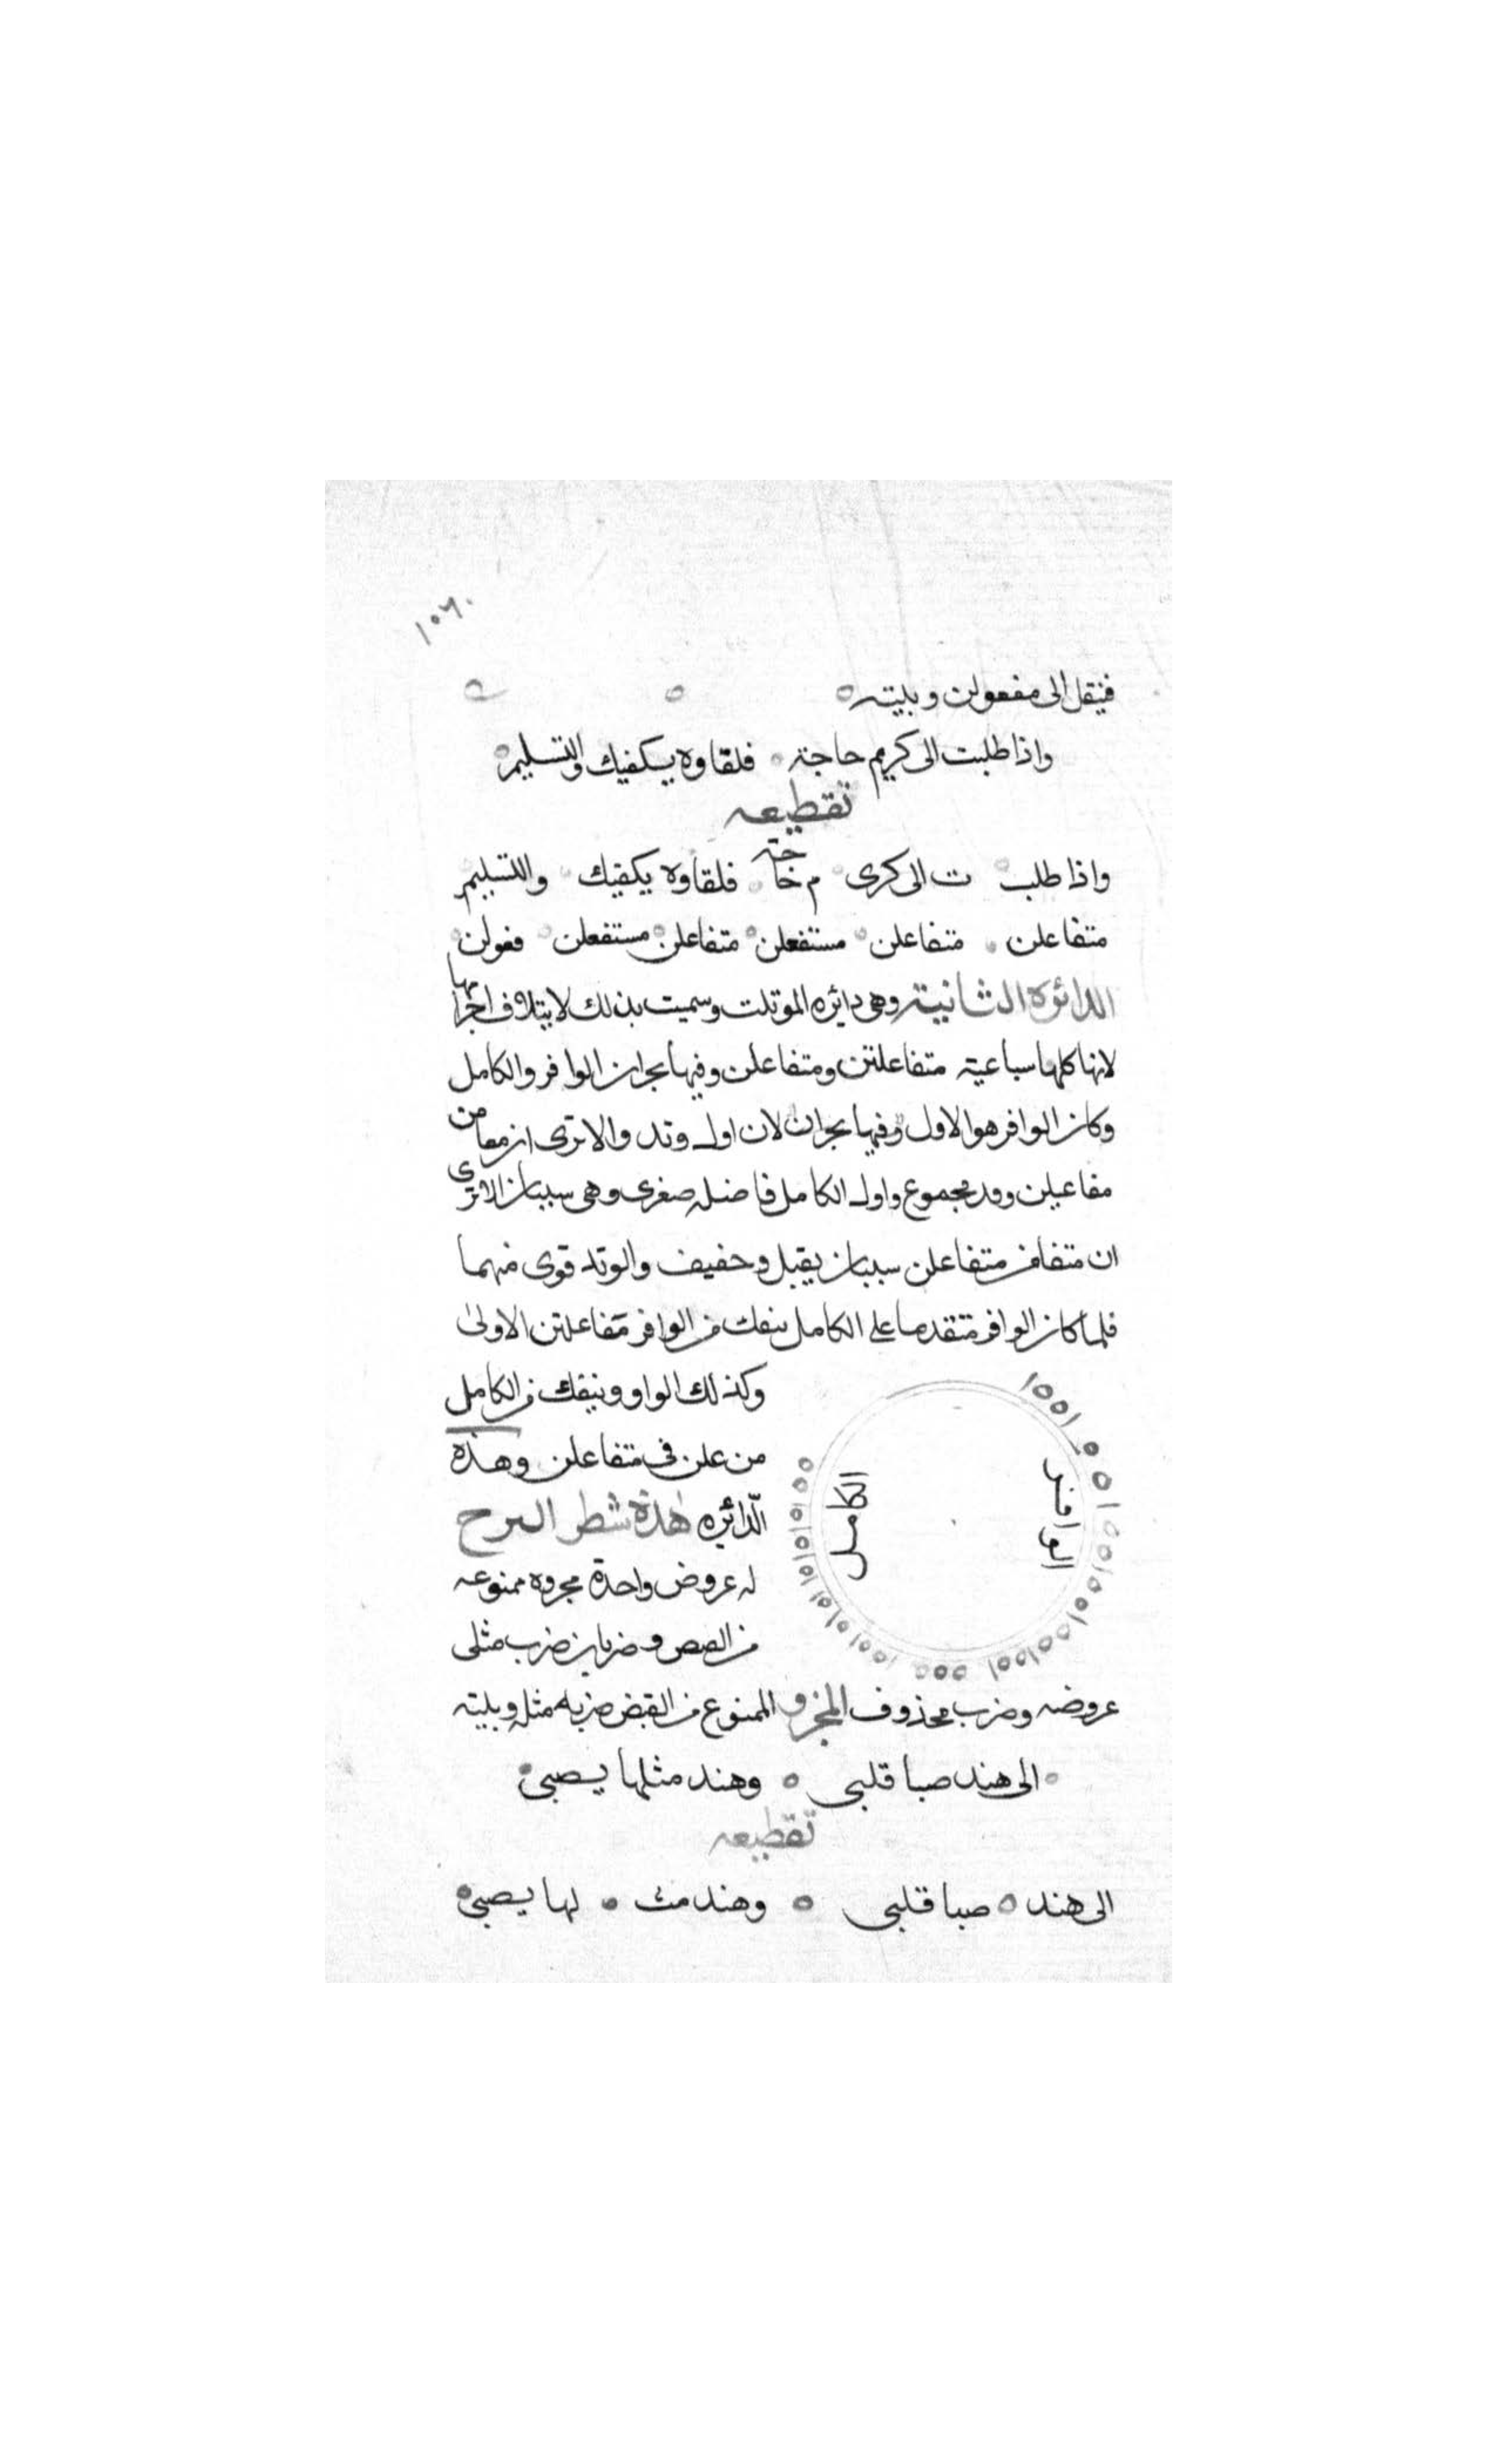 ١٥٦٠
فينقل الى مفعولن وبيته
واذا طلبت الى كريم حاجة فلقاوه يسكفيك والتسليم
تقطيعه
واذا طلب ت الى كرى م حا جة فلقاوه يكفيك والتسليم
متفاعلن متفاعلن مستفعلن متفاعلن مستفعلن فعولن
الدائرة الثانية وهى دايره الموتلت وسميت بذلك لايتلاف اجزايها
لانها كلها سباعية متفاعلتن ومتفاعلن وفيها بحران الوافر والكامل
وكان الوافر هو الاول وفيها بحران لان اوله وتد والا ترى ان مفا من
مفاعيلن مجموع واول الكامل فاضله صغرى وهى سببان الا ترى
ان متفا من متفاعلن سببان يقيل وخفيف والوتد قوى منهما
فلما كان الوافر متقدما على الكامل ينفك من الوافر مفاعلتن الاولى
وكذلك الواو وينفك من الكامل
من علن فى متفاعلن وهذه
الدائره هذه شطر السرح
له عروض واحدة مجروه ممنوعه
من وضربان ضرب مثلى
عروضه وضرب محذوف المجزو الممنوع من القبض ضربه مثله وبيته
الى هند صبا قلبى وهند مثلها يصبى
تقطيعه
الى هند صبا قلبى وهند مث لها يصبى
الكامل
الوافر